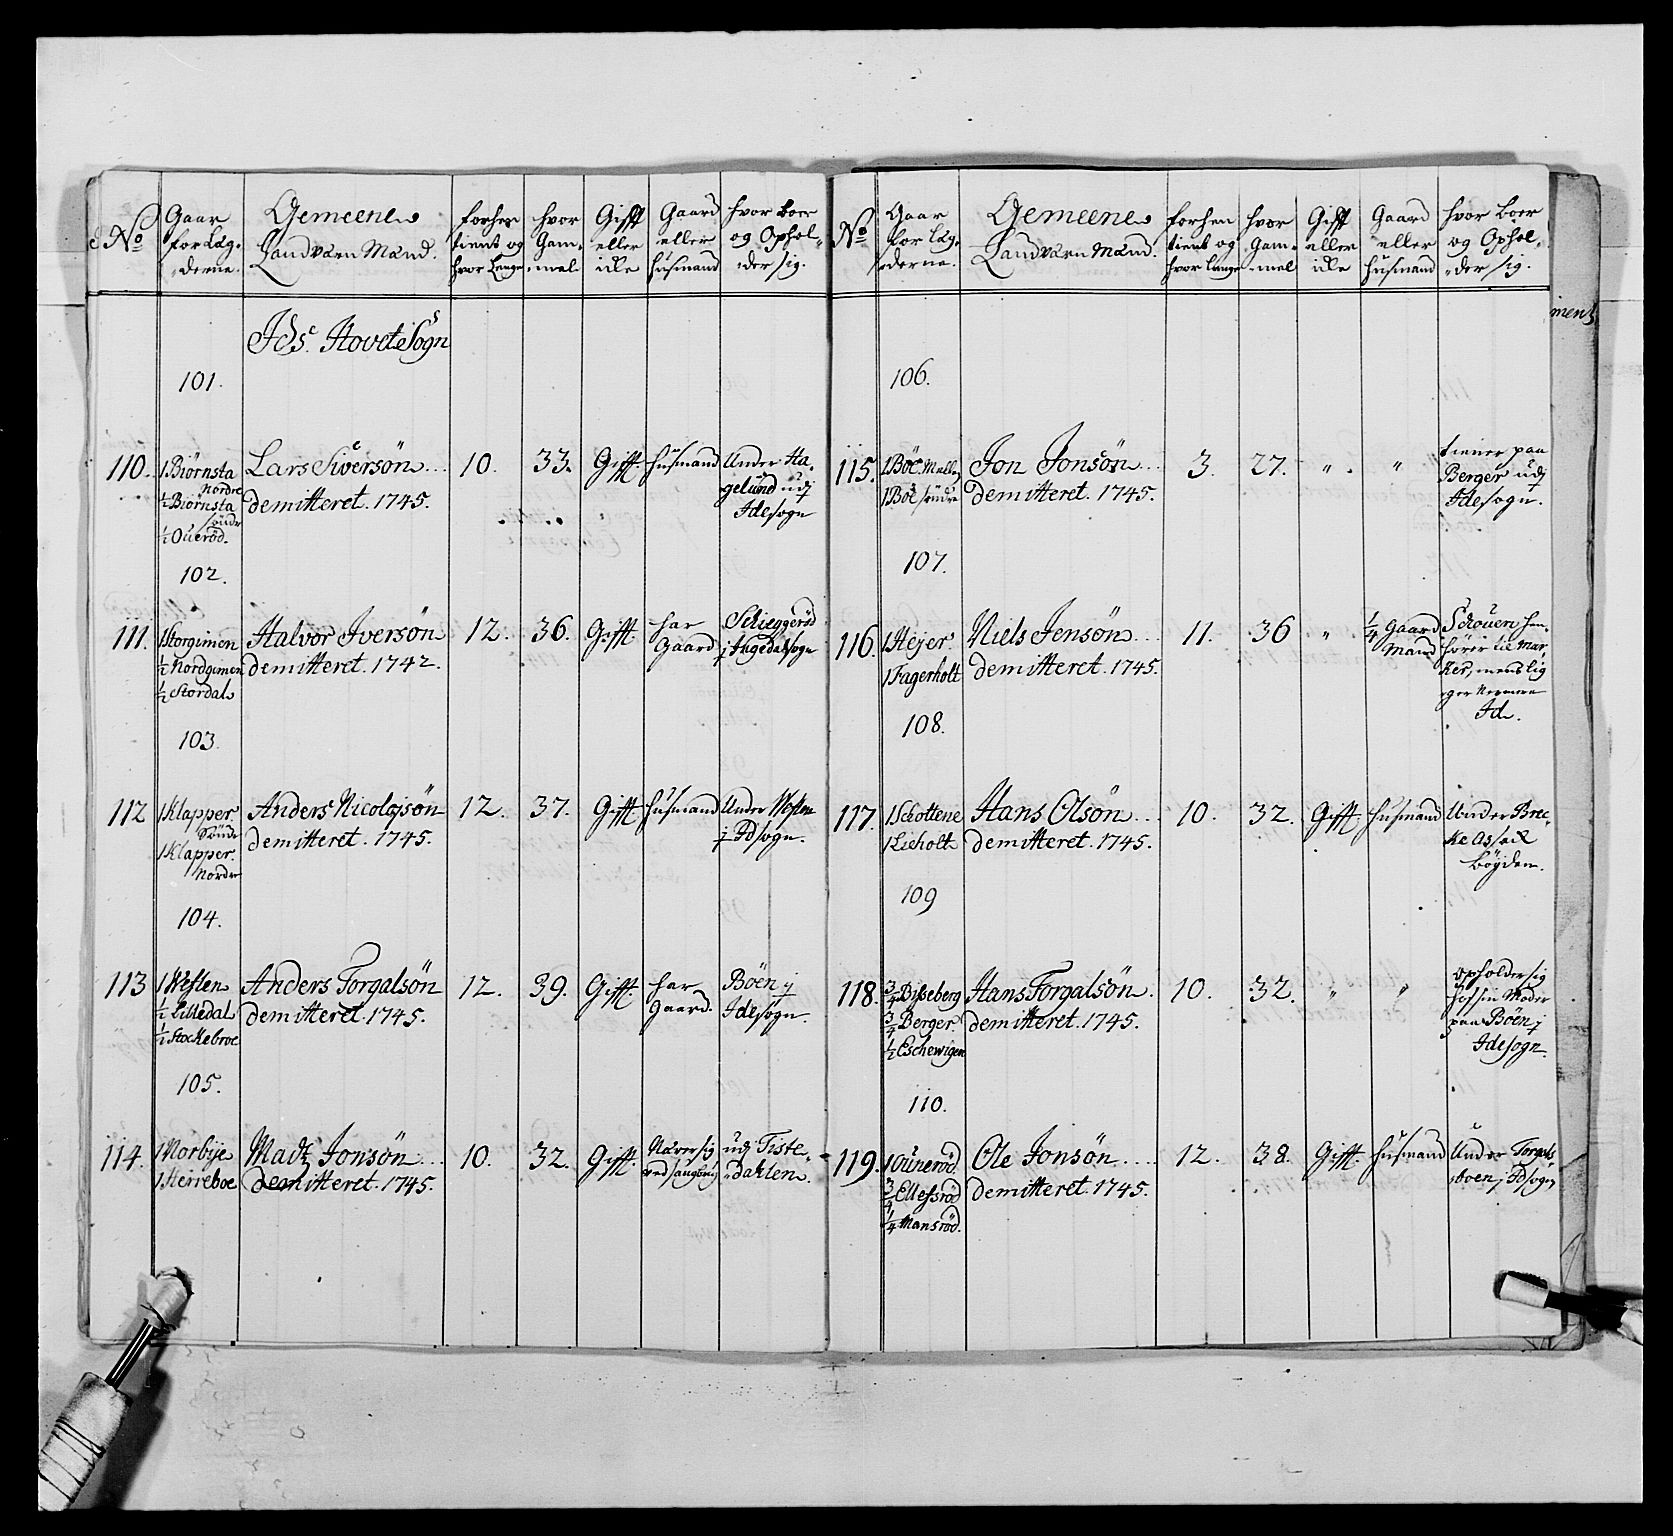 No
Gaar
for Læg-
derne.
Gemeene
Landværn Mænd.
forhen
tient og
hvor Længe
hvor
Gam-
mel
Gifft
eller
idle
Gaard
eller
Husmand
hvor boer
og Ophol-
der sig.
Ids Hovet Sogn
101.
110.
1 Biörnsta
Nordre
½ Biörnsta
söndr
½ Oueröd.
Lars Siversön
demitteret. 1745.
10.
33.
Gifft.
Husmand
Under Ha-
gelund udj
Idesogn
102.
111.
1 Storgimen
½ Nordgimen
½ Stordal
Halvor Iversön
demitteret. 1742.
12.
36.
Gifft
har
Gaard
Schieggeröd
j Agedalsogn
103.
112
1 Klapper
Söndr
1 Klapper
Nordre
Anders Nicolajsön
demitteret. 1745.
12.
37.
Gifft
Husmand
Under Westen
j Idsogn.
104.
113
1 Westen
½ Lilledal
½ Stockebroe
Anders Torgalsön
demitteret. 1745.
12.
39.
Gifft.
har
Gaard.
Böen j
Idesogn
105.
114.
1 Norbye
1 Herreboe
Madz Jonsön
demitteret. 1745.
10.
32.
Gifft.
Nærer sig
ved
udj Tiste-
dahlen.
No
Gaar
for Læg-
derne.
Gemeene
Landværn Mænd.
forhen
tient og
hvor længe
hvor
Gam-
mel
Gifft
eller
idle
Gaard
eller
Husmand
hvor boer
og Ophol-
der sig.
106.
115.
1 Böe Mellem
1 Böe söndre
Jon Jonsön
demitteret. 1745.
3.
27.
"
"
tiener paa
Berger udj
Idesogn.
107.
116.
1 Hejer
1 Fagerholt
Niels Jensön
demitteret. 1745.
11.
36
"
¼ Gaard
Mand
Schouen hen-
hörer til Mar-
ker, mens lig-
ger nermere
Id.
108.
117.
1 Schottene
1 Lieholt
Hans Olsön
demitteret. 1745.
10.
32.
Gifft
Husmand
Under Bre-
ke Assack
bögden.
109
118.
¾ Disseberg
¾ Berger
½ Eschewigen
Hans Torgalsön
demitteret. 1745.
10.
32.
"
"
opholder sig
hos sin Moder
paa Böen j
Idesogn.
110.
119.
1 Ouneröd
¾ Ellesröd
¼ Mansröd.
Ole Jonsön
demitteret. 1745.
12.
38.
Gifft.
Husmand
Under Torgals-
boen j Idsogn
ment